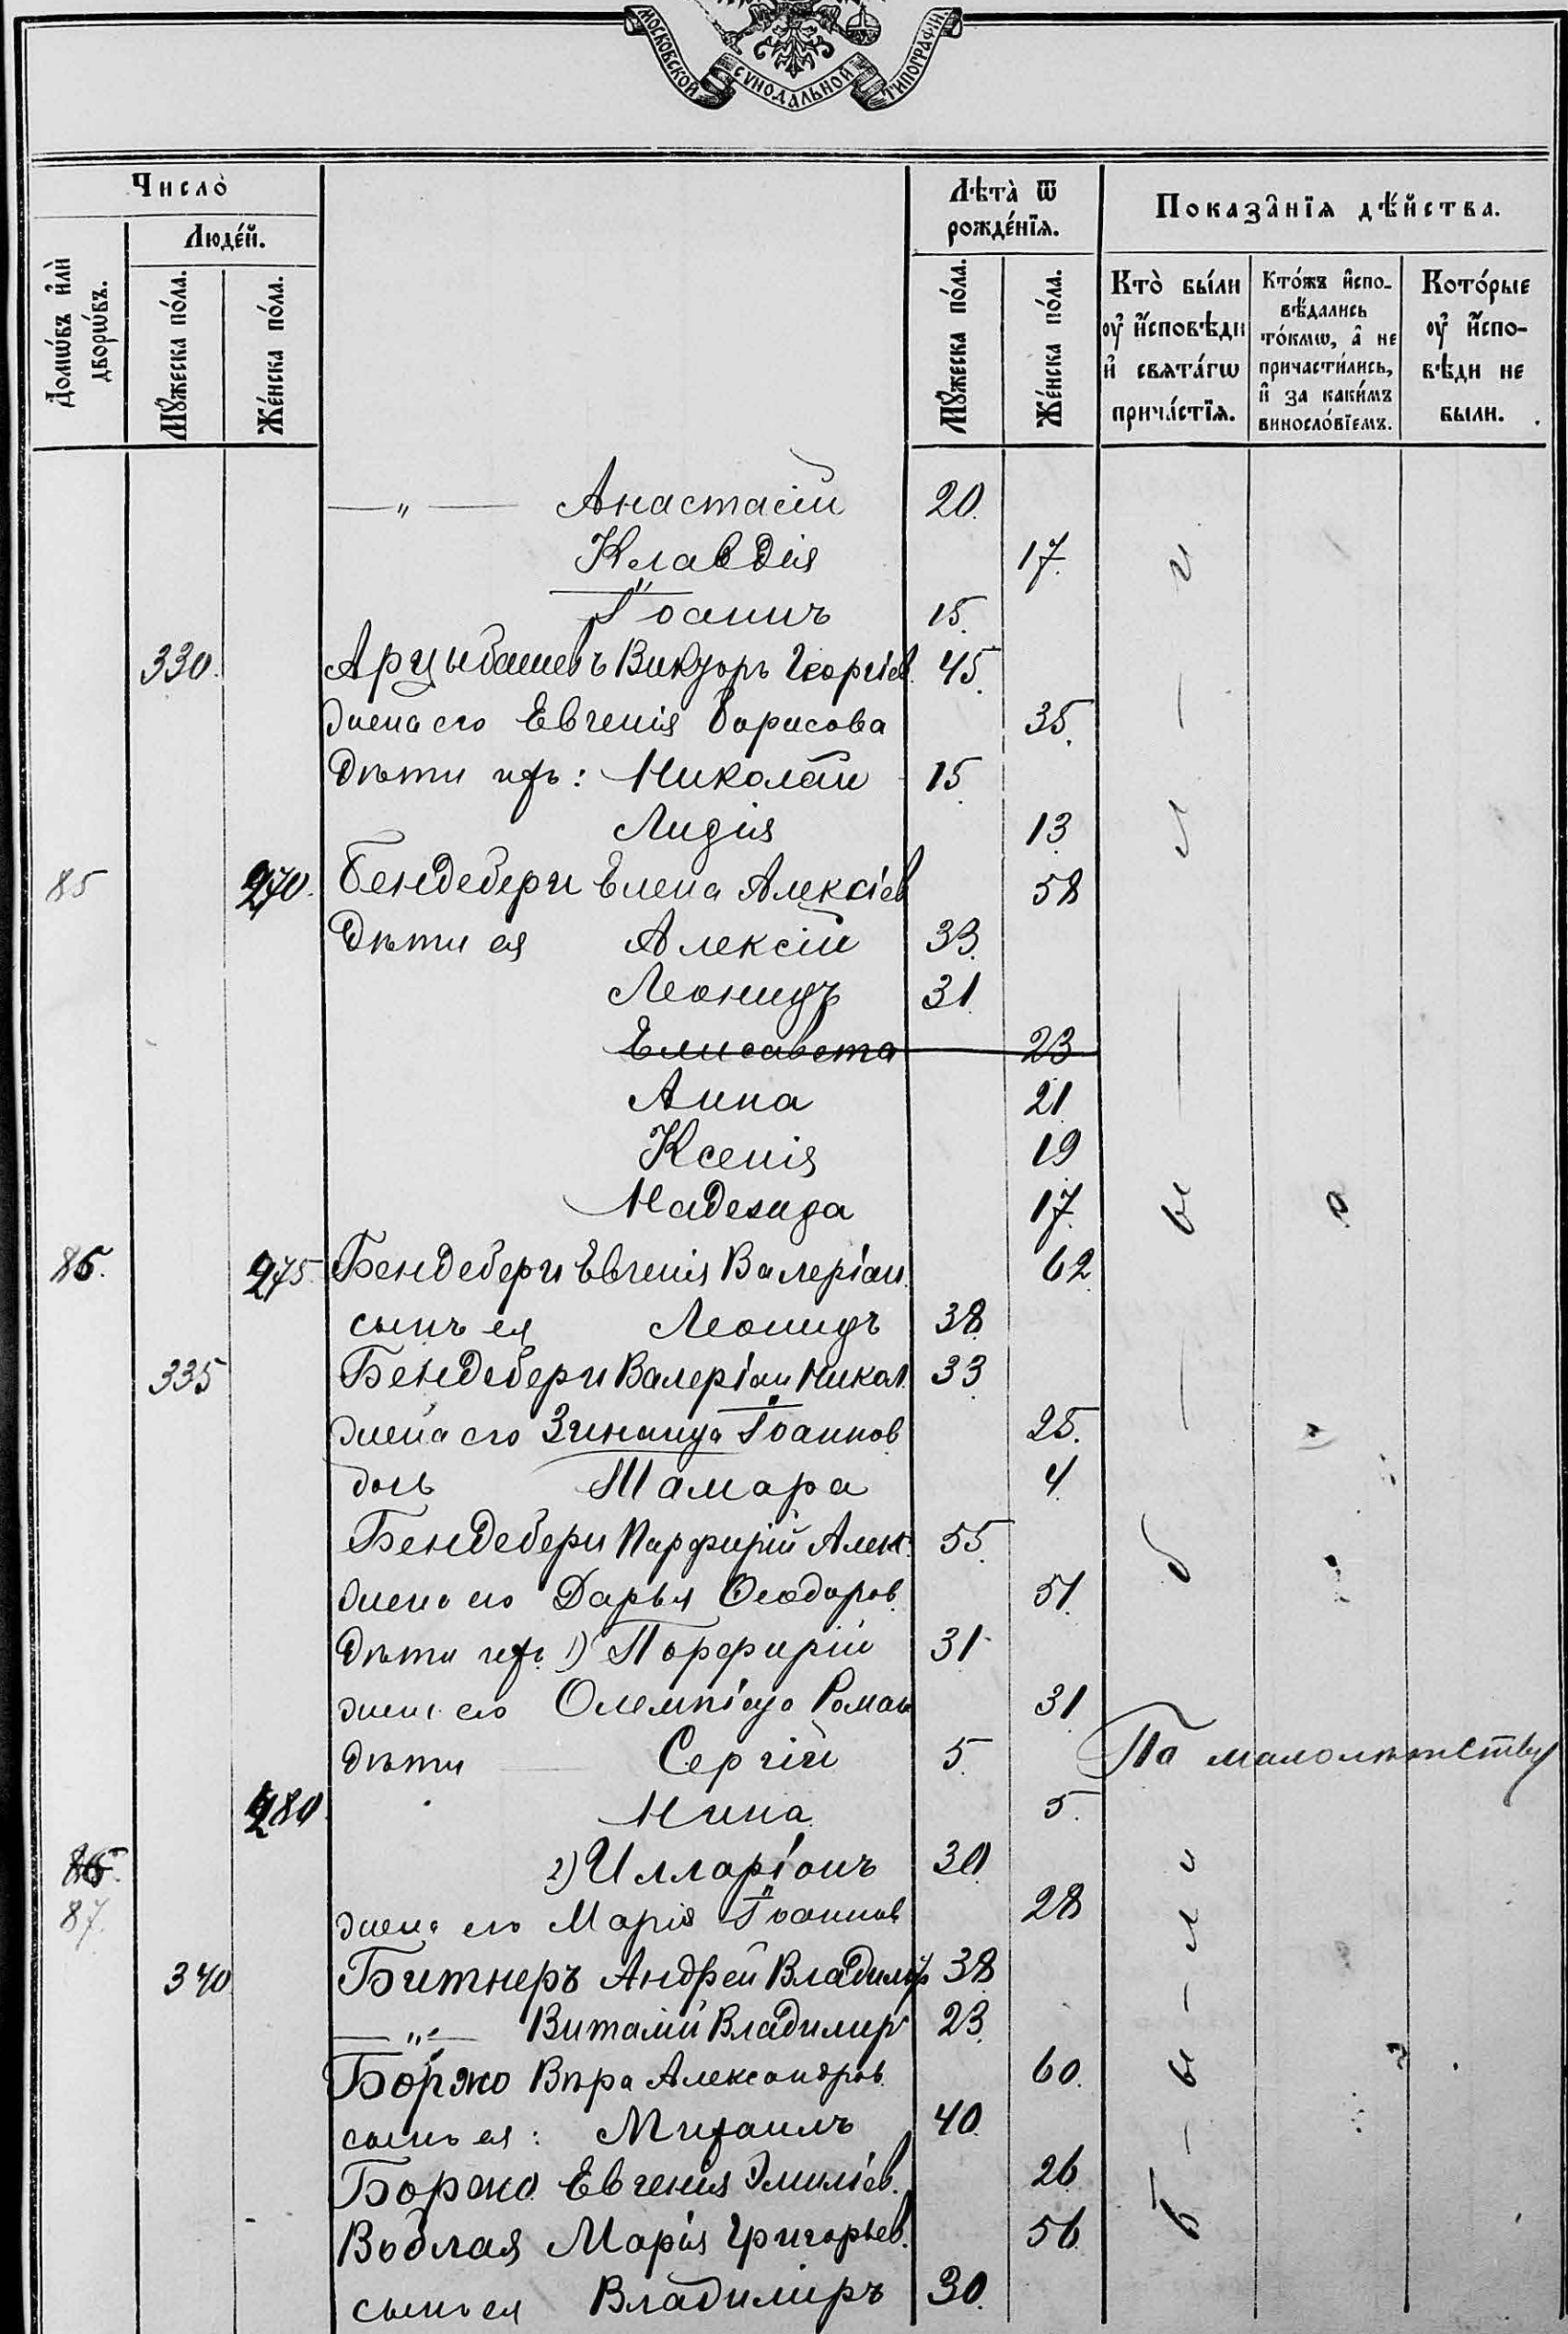 МОСКОВСКОЙ СѴНОДАЛЬНОЙ ТИПОГРАФІИ
Число̀
Люде́й.
Домѡ́въ и҆лѝ дворѡ́въ.
Мꙋ́жеска по́ла.
Же́нска по́ла.
Лѣ́та ѿ рожде́нїѧ.
Мꙋ́жеска по́ла.
Же́нска по́ла.
Показа̂нїѧ дѣ́йства.
Кто̀ бы́ли оу҆ и҆́сповѣди и҆ свѧта́гѡ прича́стїѧ.
Кто́жъ и҆сповѣ́дались то́кмѡ, а҆ не причасти́лись, и҆ за каки́мъ винослѡ́вїемъ.
Кото́рые оу҆ и҆́сповѣди не были.
—„— Анастасій 20.
Клавдія 17.
Іоаннъ 15.
330. Арцыбашевъ Викторъ Георгіев. 45.
жена его Евгенія Борисова 35.
Дѣти ихъ: Николай 15
Лидія 13
85 270. Бендебери Елена Алексіев 58
Дѣти ея Алексій 33.
Леонидъ 31.
Елисавета 23
Анна 21
Ксенія 19
Надежда 17.
86. 275. Бендебери Евгенія Валеріан. 62
сынъ ея Леонидъ 38
335 Бендебери Валеріан Никол. 33
жена его Зинаида Іоаннов 25.
дочь Тамара 4.
Бендебери Парфирій Алек. 55.
жена его Дарья Ѳеодоров. 51.
Дѣти ихъ. 1) Порфирій 31.
жена его Олемпіада Роман 31
дѣти Сергій 5. По малолѣтству
280. Нина 5.
86. 2) Илларіонъ 30
87. жена его Марія Іоаннов 28
340 Битнеръ Андрей Владимір 38
—„— Виталій Владимир 23.
Боржо Вѣра Александров. 60.
сынъ ея: Михаилъ 40.
Боржо Евгенія Эмиліев. 26
Водлая Марія Григорьев. 56.
сынъ ея Владиміръ 30.
и – л – ы – б
и – л – ы – б